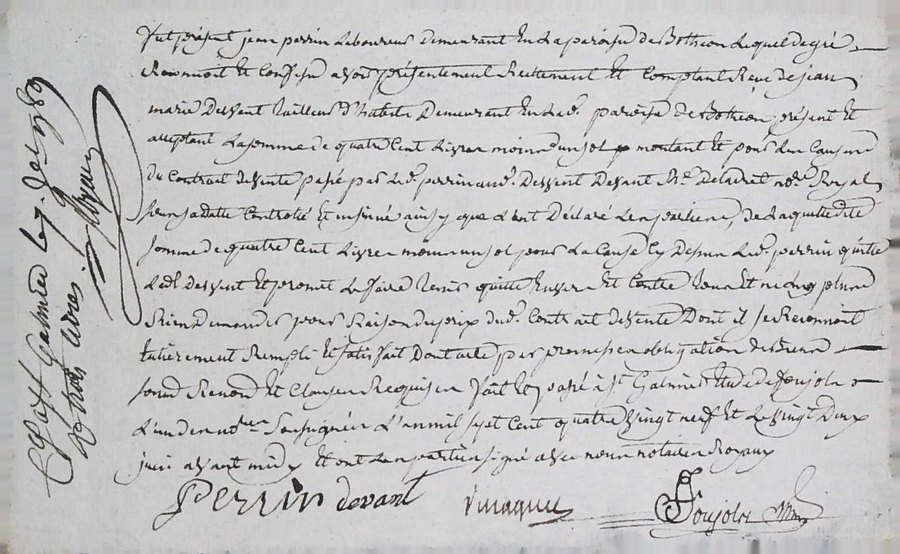 fut présent jean perrin Laboureur demeurant En La paroisse de Botheon Lequel de gré
Reconnoit Et Confesse avoir présentement Reellement Et Comptant Reçu de jean
marie Devant tailleur d'habits Demeurant En Lad. paroisse de Botheon, présent Et
acceptant La somme de quatre Cent Livres moins un sol montant Et pour Les Causes
du Contrait de vente passé par Led. perrin aud. Devant Devant Me. notre Royal
Sous sa datte Controllé Et insinué ainsy que L'ont Déclaré Les parties, de Laquelle dite
somme de quatre Cent Livres moins un sol pour La Cause Cy Dessus Led. perrin quitte
Led. Devant Et promet Le faire tenir quitte Envers Et Contre tous Et ne luy plus
Rien Demander pour Raison du prix dud. Contrait de vente Dont il se Reconnoit
Entierement Rempli Et satisfait Dont acte par promesses obligation de Biens
soumis Renond. Et Clauses Requises fait Et passé à St. Galmier Etude de Foujols
L'un des nores. Soussignés L'an mil sept Cent quatre vingt neuf Et Le vingt Deux
juin avant midy Et ont Les parties signé avec nous notaires Royaux
PERRIN devant
Foujols
St Galmier Le 1789
trois livres